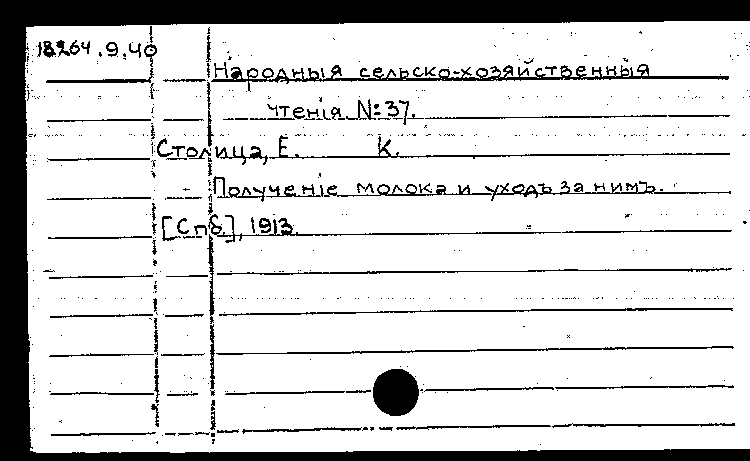 18264.9.40
Народныя сельско-хозяйственныя
чтенія. №37.
Столица, Е. К.
Полученіе молока и уходъ за нимъ.
[Спб], 1913.